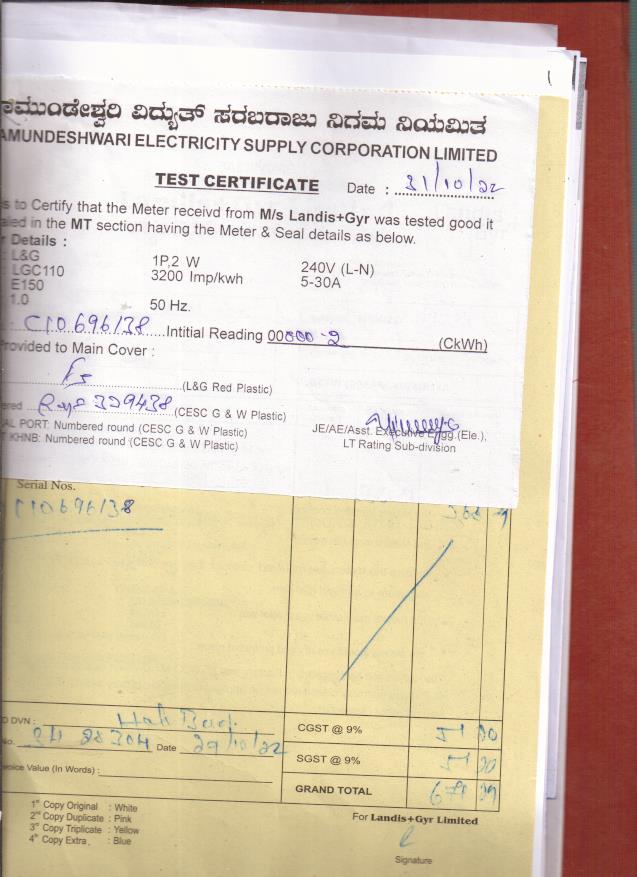 ಾಮುಂಡೇಶ್ವರಿ ವಿದ್ಯುತ್ ಸರಬರಾಜು ನಿಗಮ ನಿಯಮಿತ
AMUNDESHWARI ELECTRICITY SUPPLY CORPORATION LIMITED
TEST CERTIFICATE Date : 31/10/22
s to Certify that the Meter receivd from M/s Landis+Gyr was tested good it
aled in the MT section having the Meter & Seal details as below.
r Details :
: L&G 1P,2 W 240V (L-N)
: LGC110 3200 Imp/kwh 5-30A
: E150
: 1.0 50 Hz.
C10696138 Intitial Reading 00000-2 (CkWh)
Provided to Main Cover :
(L&G Red Plastic)
ered 329438 (CESC G & W Plastic)
AL PORT: Numbered round (CESC G & W Plastic)
T KHNB: Numbered round (CESC G & W Plastic)
JE/AE/Asst. Executive Engg.(Ele.),
LT Rating Sub-division
Serial Nos.
C10696138
D DVN :
CGST @ 9%
No. Date 29/10/22
SGST @ 9%
voice Value (In Words) :
GRAND TOTAL
1st Copy Original : White
2nd Copy Duplicate : Pink
3rd Copy Triplicate : Yellow
4th Copy Extra : Blue
For Landis+Gyr Limited
Signature